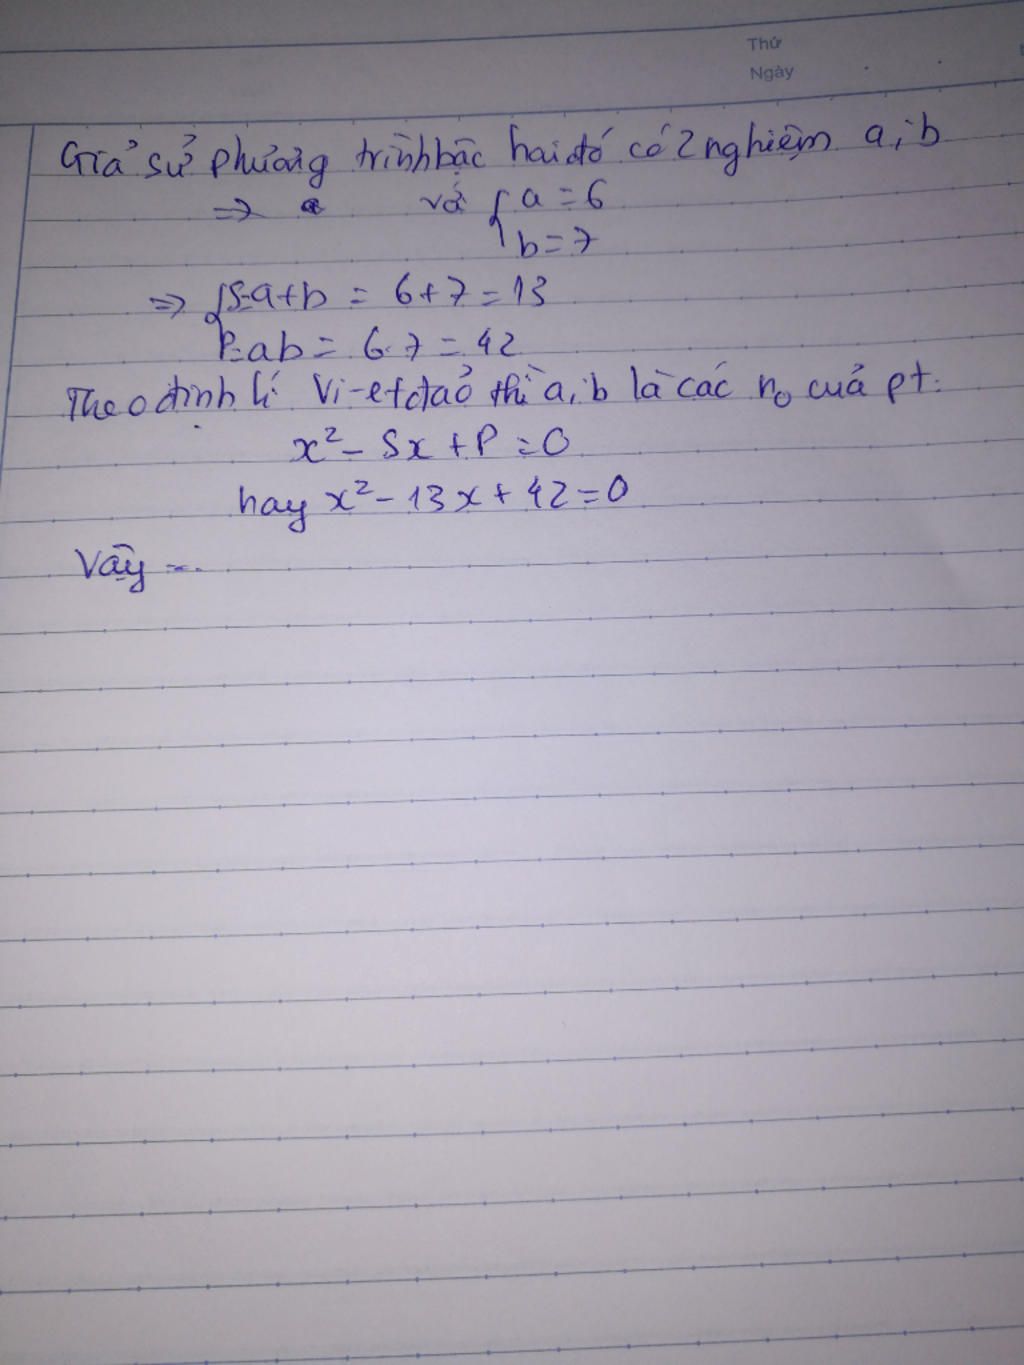 Thứ
Ngày
Giả sử phương trình bậc hai đó có 2 nghiệm a, b
=> với { a = 6
b = 7
=> { S=a+b = 6+7 = 13
P=ab = 6.7 = 42
Theo định lí Vi-et đảo thì a, b là các no của pt:
x² - Sx + P = 0
hay x² - 13x + 42 = 0
Vậy ...